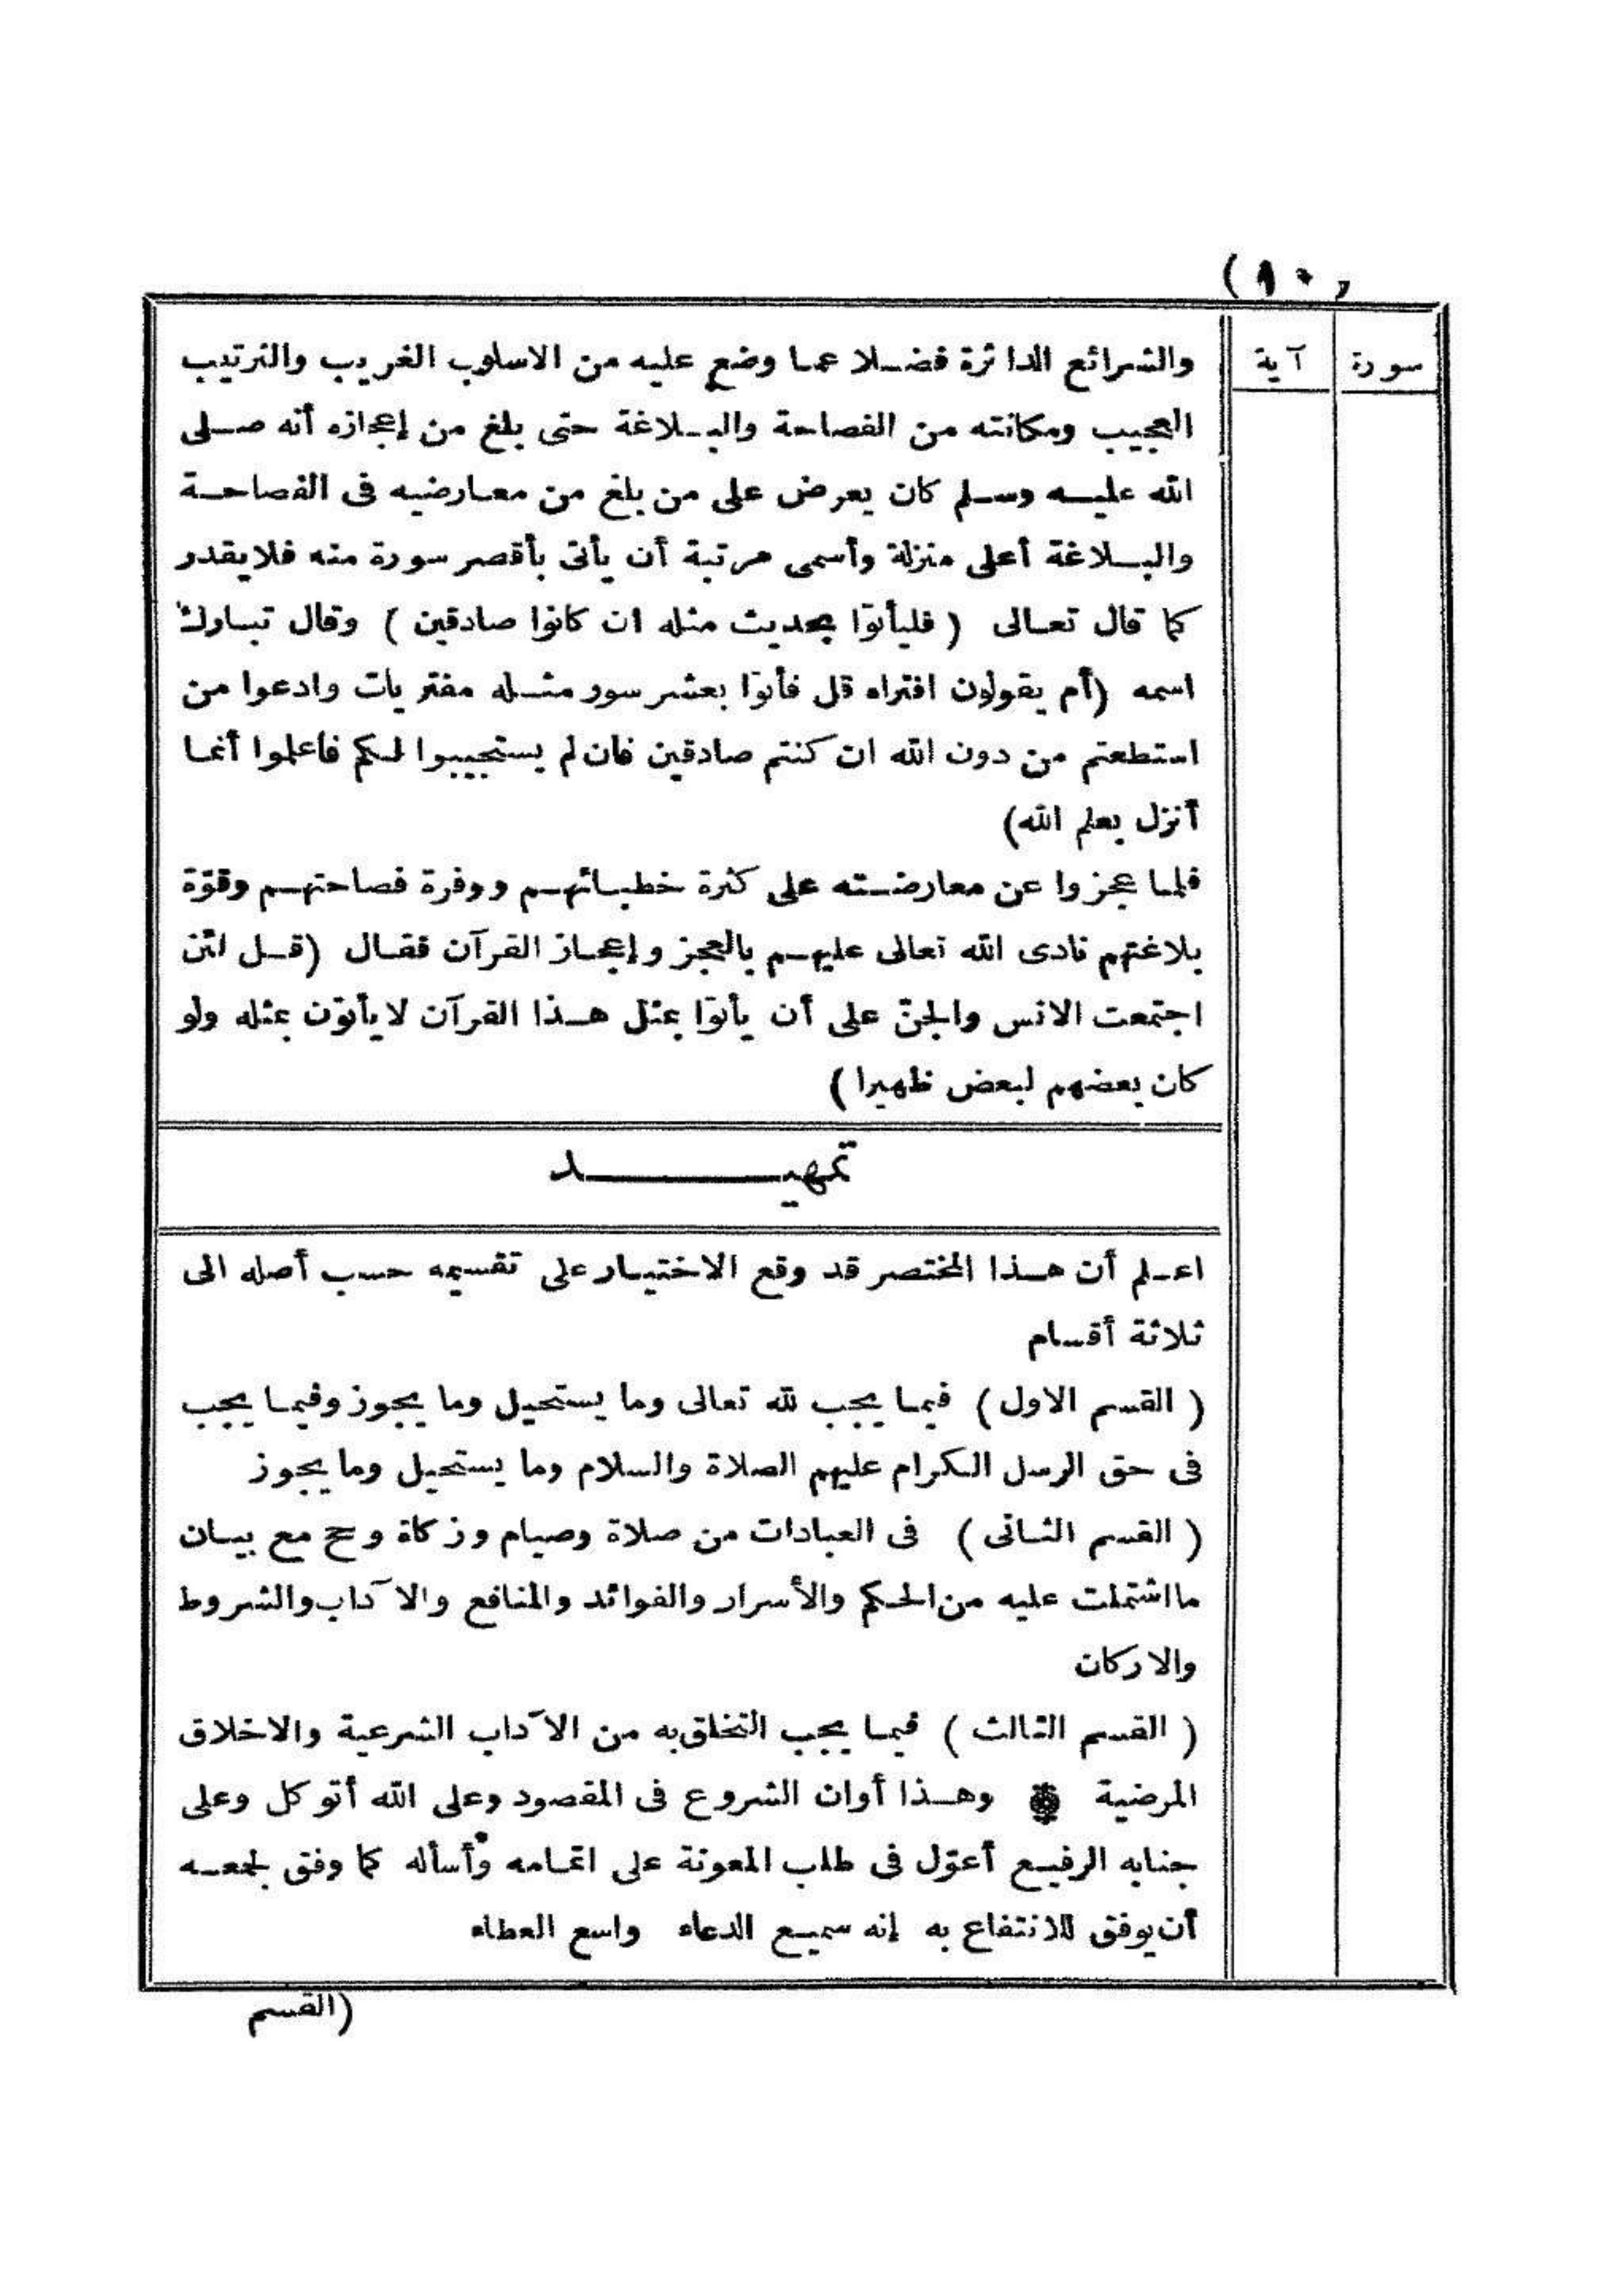 (١٠)
سورة
آية
والشرائع الداثرة فضلا عما وضع عليه من الاسلوب الغريب والترتيب
العجيب ومكانته من الفصاحة والبلاغة حتى بلغ من إعجازه أنه صلى
الله عليه وسلم كان يعرض على من بلغ من معارضيه فى الفصاحة
والبلاغة أعلى منزلة وأسمى مرتبة أن يأتى بأقصر سورة منه فلا يقدر
كما قال تعالى (فليأتوا بحديث مثله ان كانوا صادقين) وقال تبارك
اسمه (أم يقولون افتراه قل فأتوا بعشر سور مثله مفتريات وادعوا من
استطعتم من دون الله ان كنتم صادقين فان لم يستجيبوا لكم فاعلموا أنما
أنزل بعلم الله)
فلما عجزوا عن معارضته على كثرة خطبائهم ووفرة فصاحتهم وقوّة
بلاغتهم نادى الله تعالى عليهم بالعجز وإعجاز القرآن فقال (قل لئن
اجتمعت الانس والجنّ على أن يأتوا بمثل هذا القرآن لا يأتون بمثله ولو
كان بعضهم لبعض ظهيرا)
تمهيد
اعلم أن هذا المختصر قد وقع الاختيار على تقسيمه حسب أصله الى
ثلاثة أقسام
(القسم الاول) فيما يجب لله تعالى وما يستحيل وما يجوز وفيما يجب
فى حق الرسل الكرام عليهم الصلاة والسلام وما يستحيل وما يجوز
(القسم الثانى) فى العبادات من صلاة وصيام وزكاة وحج مع بيان
ما اشتملت عليه من الحكم والأسرار والفوائد والمنافع والآداب والشروط
والاركان
(القسم الثالث) فيما يجب التخلق به من الآداب الشرعية والاخلاق
المرضية * وهذا أوان الشروع فى المقصود وعلى الله أتوكل وعلى
جنابه الرفيع أعوّل فى طلب المعونة على اتمامه وأسأله كما وفق لجمعه
أن يوفق للانتفاع به إنه سميع الدعاء واسع العطاء
(القسم